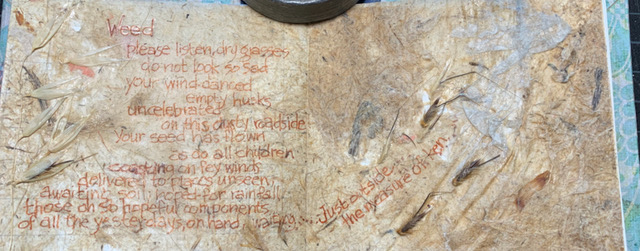 Weed
please listen, dry grasses
do not look so sad
your wind-danced
empty husks
uncelebrated
on this dusty roadside
Your seed has flown
as do all children
on fey winds
delivered to places unseen
awaiting soil hoped-for rainfall
those oh so hopeful components
of all the yesterdays, on hand, waiting...
Just outside
the measure of ken...